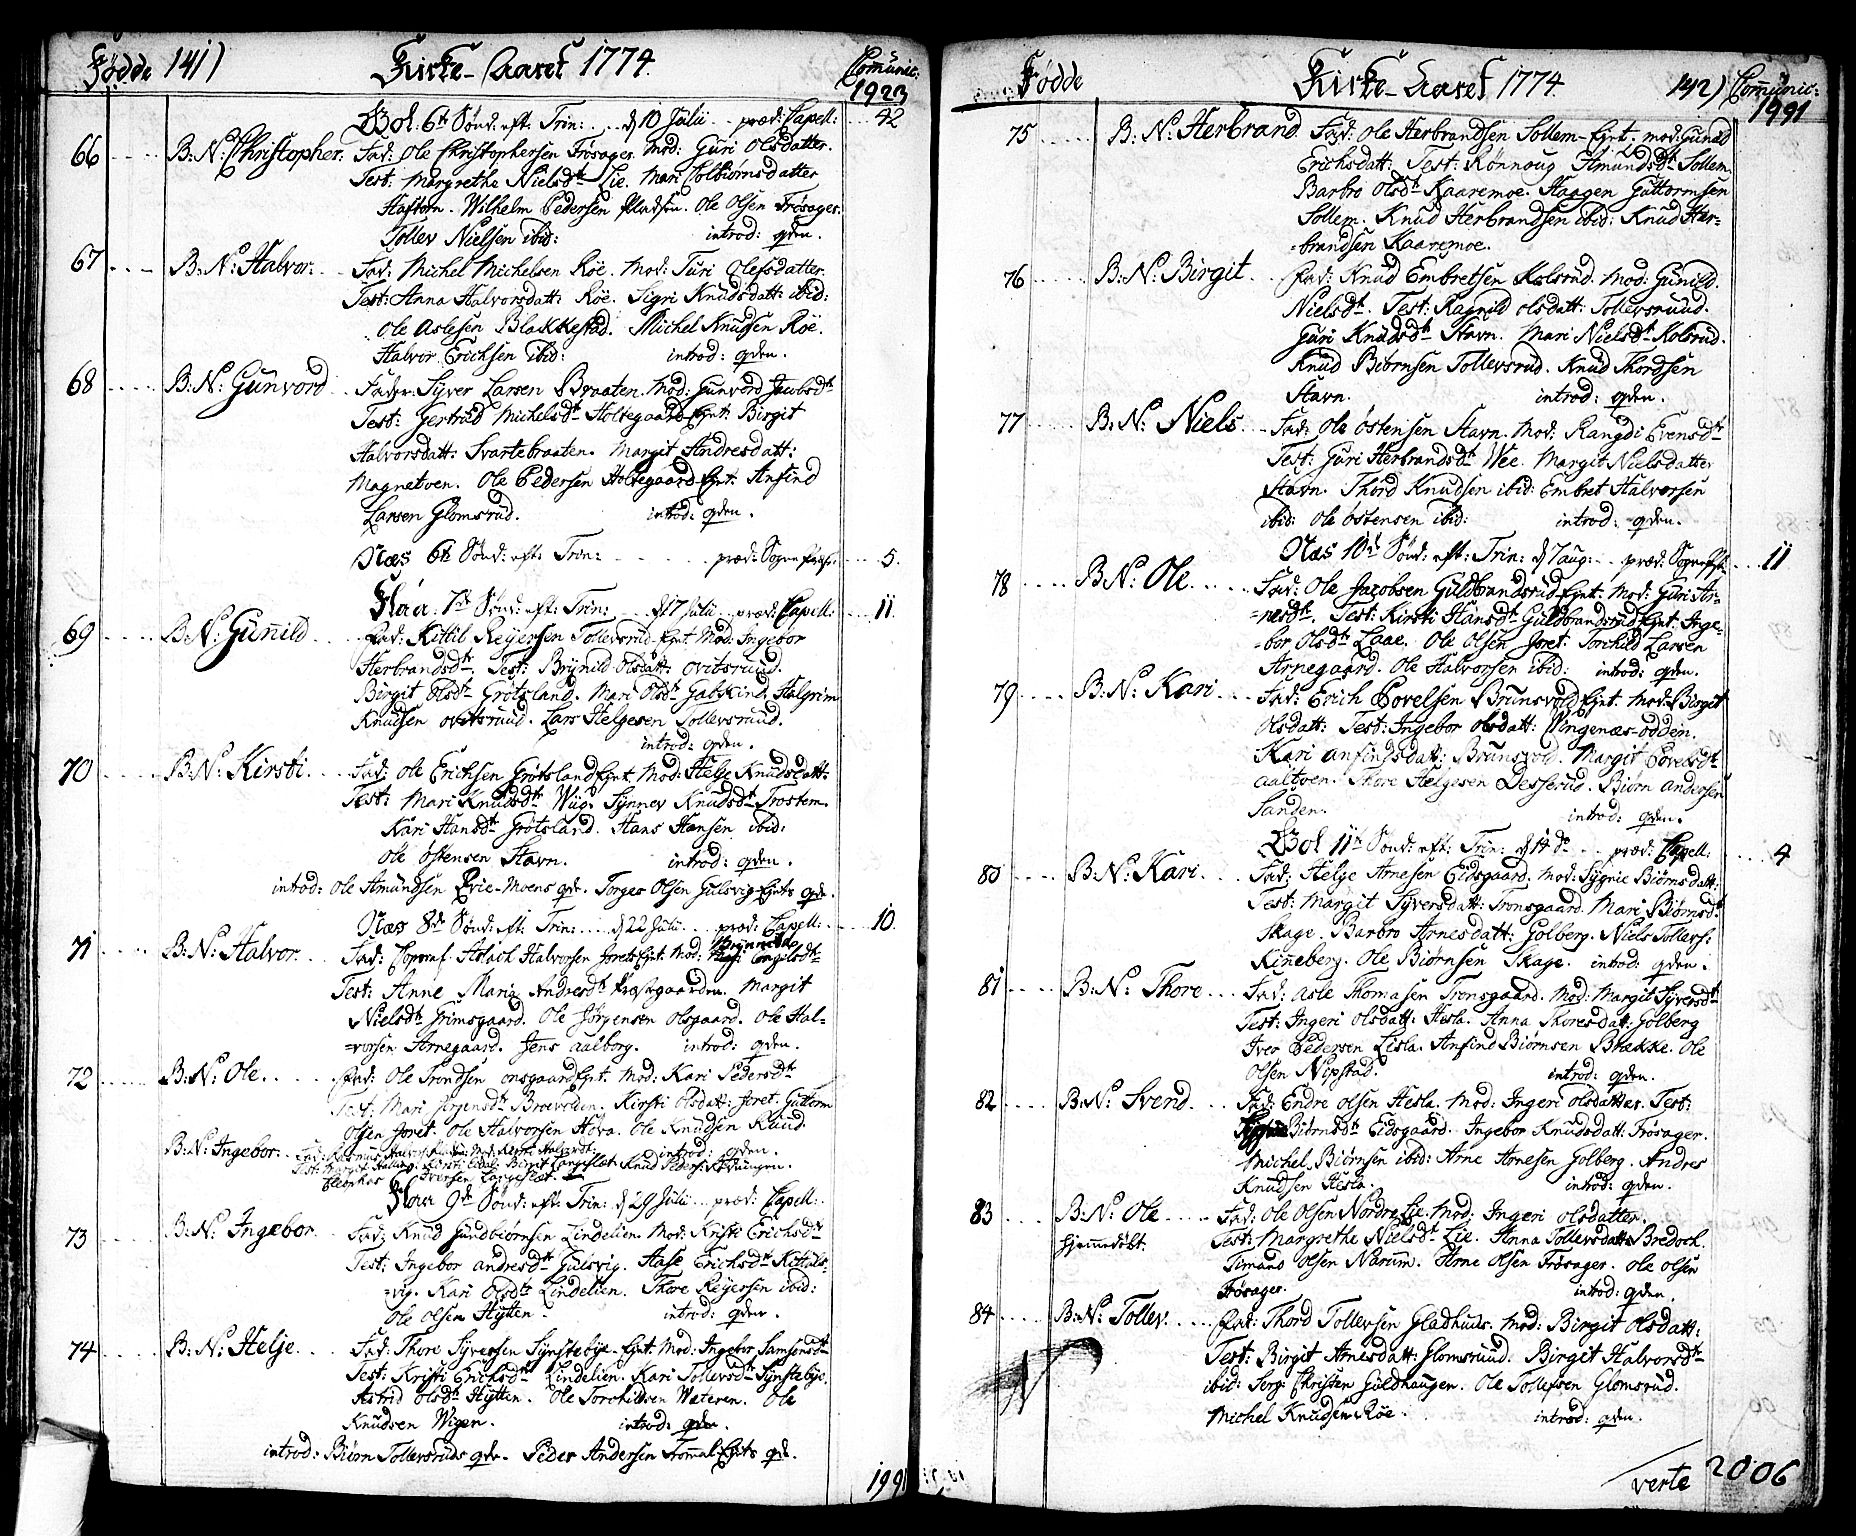 Fødde 141) Kirke-Aaret 1774. Comunic:
1923
Bol 6te Sønd: eft: Trin: .... d 10 Julii .. præd: Capell: ... 42
66 .... B: N: Christopher. Fad: Ole Christophersen Frøsager. Mod: Guri Olsdatter.
Test: Margrethe Nielsdtr Lie. Mari Tolbiørnsdatter
Haftorn. Wilhelm Pedersen. Ole Olsen Frøsager.
Tollev Nielsen ibid: introd: qden.
67 .... B: N: Halvor. Fad: Michel Michelsen Røe. Mod: Turi Olefsdatter.
Test: Anna Halvorsdatt: Røe. Sigri Knudsdatt: ibid:
Ole Aslesen Blakkestad. Michel Knudsen Røe.
Halvor Erichsen ibid: introd: qden.
68 .... B: N: Gunvord Fader: Syver Larsen Braaten. Mod: Gunvord Jacobsdtr
Test: Gertrud Michelsdtr Holtegaard Eynt: Birgit
Halvorsdatt: Svartebraaten. Margit Andresdatt:
Magnetven. Ole Pedersen Holtegaard Eynt. Anfind
Larsen Glomsrud. introd: qden.
Næs 6te Sønd: eft: Trin: ..... præd: Sogne Præst: ... 5.
Flaa 7de Sønd: eft: Trin: ... d 17 Julii præd: Capell: ... 11.
69 .... B: N: Gunild .... Fad: Kittil Reyersen Tollevsrud Eynt Mod: Ingebor
Herbrandsdtr. Test: Brynild Olsdatt: Ovitsruud.
Birgit Olsdtr Grøtsland. Mari Olsdtr Gabskind. Halgrim
Knudsen Ovitsruud. Lars Helgesen Tollevsruud.
introd: qden.
70 .... B: N: Kirsti ... Fad: Ole Erichsen Grøtsland Eynt. Mod: Helge Knudsdatt:
Test: Mari Knudsdtr Wiig. Synnev Knudsdtr Trostem.
Kari Hansdtr Grøtsland. Hans Hansen ibid:
Ole Østensen Stavn. introd: qden.
introd: Ole Amundsen Evie-Moens qde. Torger Olsen Gulsvig Eynts qde.
Næs 8de Sønd: eft: Trin: ... d 22 Julii ... præd: Capell: ... 10.
71 .... B: N: Halvor. .. Fad: Aslach Halvorsen Joret Eynt Mod: Brynnild Engilsdtr
Test: Anne Maria Andresdtr Præstgaarden. Margit
Nielsdtr Grimsgaard. Ole Jørgensen Olsgaard. Ole Hal-
=vorsen Arnegaard. Jens Aalborg. introd: qden.
72 .... B: N: Ole. .... Fad: Ole Trondsen Onsgaard Eynt. Mod: Kari Pedersdtr
Test: Mari Jørgensdtr Broevolden. Kirsti Olsdatt: Joret. Guttorm
Olsen Joret. Ole Halvorsen Hova. Ole Knudsen Ruud.
introd: qden.
B: N: Ingebor.
Flaa 9de Sønd: eft: Trin: d 29 Julii ... præd: Capell:.
73 .... B: N: Ingebor. Fad: Knud Gundbiørnsen Lindelien. Mod: Kristi Erichsdtr
Test: Ingebor Andresdtr Gulsvig. Aase Erichsdtr Kittils-
=vig. Kari Olsdtr Lindelien. Thore Reyersen ibid:
Ole Olsen Hytten. introd: qden.
74 .... B: N: Helje. .. Fad: Thore Syversen Synstebye Eynt. Mod: Ingebor Samsonsdtr
Test: Kristi Erichsdtr Lindelien. Kari Tollevsdtr Synstebye.
Astrid Olsdtr Hytten. Ole Torchildsen Wæteren. Ole
Knudsen Wigen. introd: qden.
introd: Biørn Tollevsruds qde. Peder Andersen Trommal: Eynts qd.
199
Fødde Kirke-Aaret 1774 142) Comunic:
1991
75 .... B: N: Herbrand. Fad: Ole Herbrandsen Sollem Eynt: Mod: Gunild
Erichsdatt: Test: Rønnoug Amundsdtr Sollem.
Barbro Olsdtr Kaaremoe. Haagen Guttormsen
Sollem. Knud Herbrandsen ibid: Knud Her-
=brandsen Kaaremoe.
76 .... B: N: Birgit . Fad: Knud Embretsen Kolsrud. Mod: Gunild.
Nielsdtr. Test: Ragnild Olsdatt: Tollevsruud.
Guri Knudsdtr Stavn. Mari Nielsdtr Kolsrud.
Knud Biørnsen Tollevsrud. Knud Thordsen
Stavn. introd: qden.
77 .... B: N: Niels. .. Fad: Ole Østensen Stavn. Mod: Rangdi Evensdtr
Test: Guri Herbrandsdtr Wee. Margit Nielsdatter
Stavn. Thord Knudsen ibid: Embret Halvorsen
ibid: Ole Østensen ibid: introd: qden.
Næs 10de Sønd: eft: Trin: d 7 Aug: .. præd: Sogne Præst: ... 11
78 .... B: N: Ole .... Fad: Ole Jacobsen Guldbrandsrud Eynt. Mod: Guri Ar-
=nesdtr. Test: Kirsti Hansdtr Guldbrandsrud Eynt. Inge-
=bor Olsdtr Laae. Ole Olsen Joret. Torchild Larsen
Arnegaard. Ole Halvorsen ibid: introd: qden.
79 .... B: N: Kari .... Fad: Erich Povelsen Brunsvold Eynt. Mod: Birgit
Olsdatt: Test: Ingebor Olsdatt: Wingenæs-Odden.
Kari Anfindsdatt: Brunsvold. Margit Povelsdtr
Aaltven. Thore Helgesen Desserud. Biørn Andersen
Sanden. introd: qden.
Bol 11te Sønd: eft: Trin: d 14 do ... præd: Capell: .... 4
80 .... B: N: Kari. ... Fad: Helge Arnesen Eidsgaard. Mod: Sygnie Biørnsdatt:
Test: Margit Syversdatt: Tronsgaard. Mari Biørnsdtr
Skage. Barbro Arnesdatt: Golberg. Niels Tollevs:
Kinneberg. Ole Biørnsen Skage. introd: qden.
81 .... B: N: Thore ... Fad: Asle Thomasen Tronsgaard. Mod: Margit Syversdtr
Test: Ingeri Olsdatt: Hesla. Anna Thoresdatt: Golberg
Iver Pedersen Lisla. Anfind Biørnsen Brække. Ole
Olsen Nipstad. introd: qden.
82 .... B: N: Svend. ... Fad: Endre Olsen Hesla. Mod: Ingeri Olsdatter. Test:
Biørnsdtr Eidsgaard. Ingebor Knudsdatt: Frøsager.
Michel Biørnsen ibid: Arne Arnesen Golberg. Andres
Knudsen Hesla. introd: qden.
83 .... B: N: Ole .... Fad: Ole Olsen Nordre Lie. Mod: Ingeri Olsdatter.
Hjemmedøbt. Test: Margrethe Nielsdtr Lie. Anna Tollevsdatt: Bredoch.
Timand Olsen Narum. Arne Olsen Frøsager. Ole Olsen
Frøsager. introd: qden.
84 .... B: N: Tollev. .... Fad: Thord Tollevsen Gladhuus. Mod: Birgit Olsdatt:
Test: Birgit Arnesdatt: Glomsruud. Birgit Halvorsdtr
ibid: Serg: Christen Guldhaugen. Ole Tollefsen Glomsrud.
Michel Knudsen Røe. introd: qden.
verte 2006